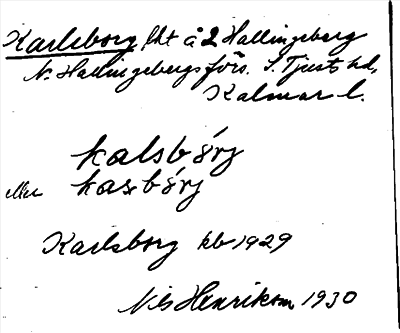 Karlsborg lht å 2 Hallingeberg
N. Hallingebergs förs. S. Tjusts hd,
Kalmar l.
kalsbórj
eller kasbórj
Karlsborg kb 1929
Nils Henrikson 1930